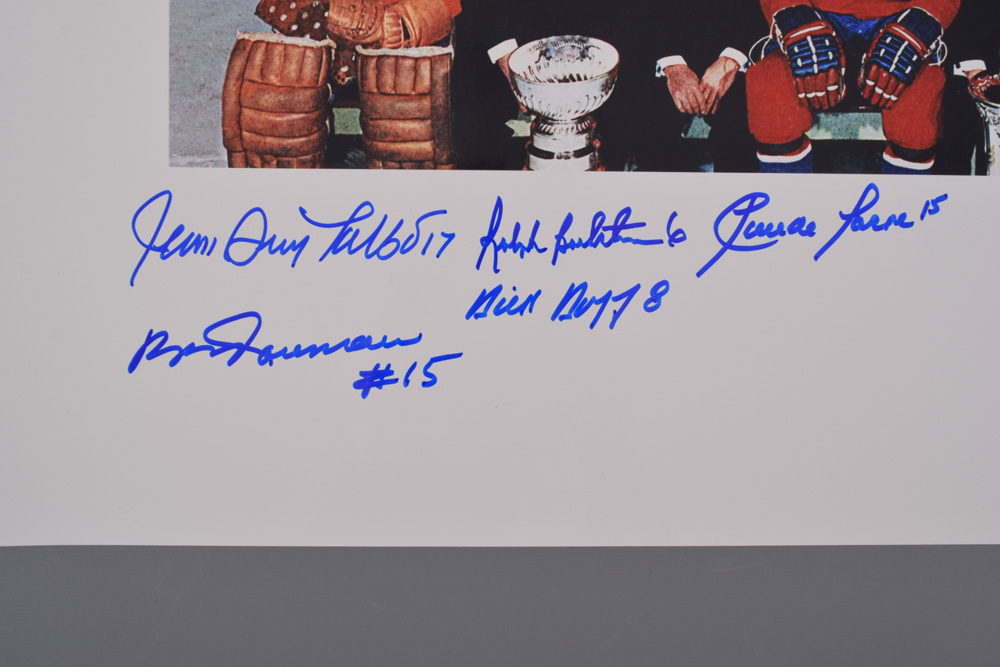 Jean Guy Talbot 17 Ralph Backstrom 6 Claude Larose 15
Dick Duff 8
#15